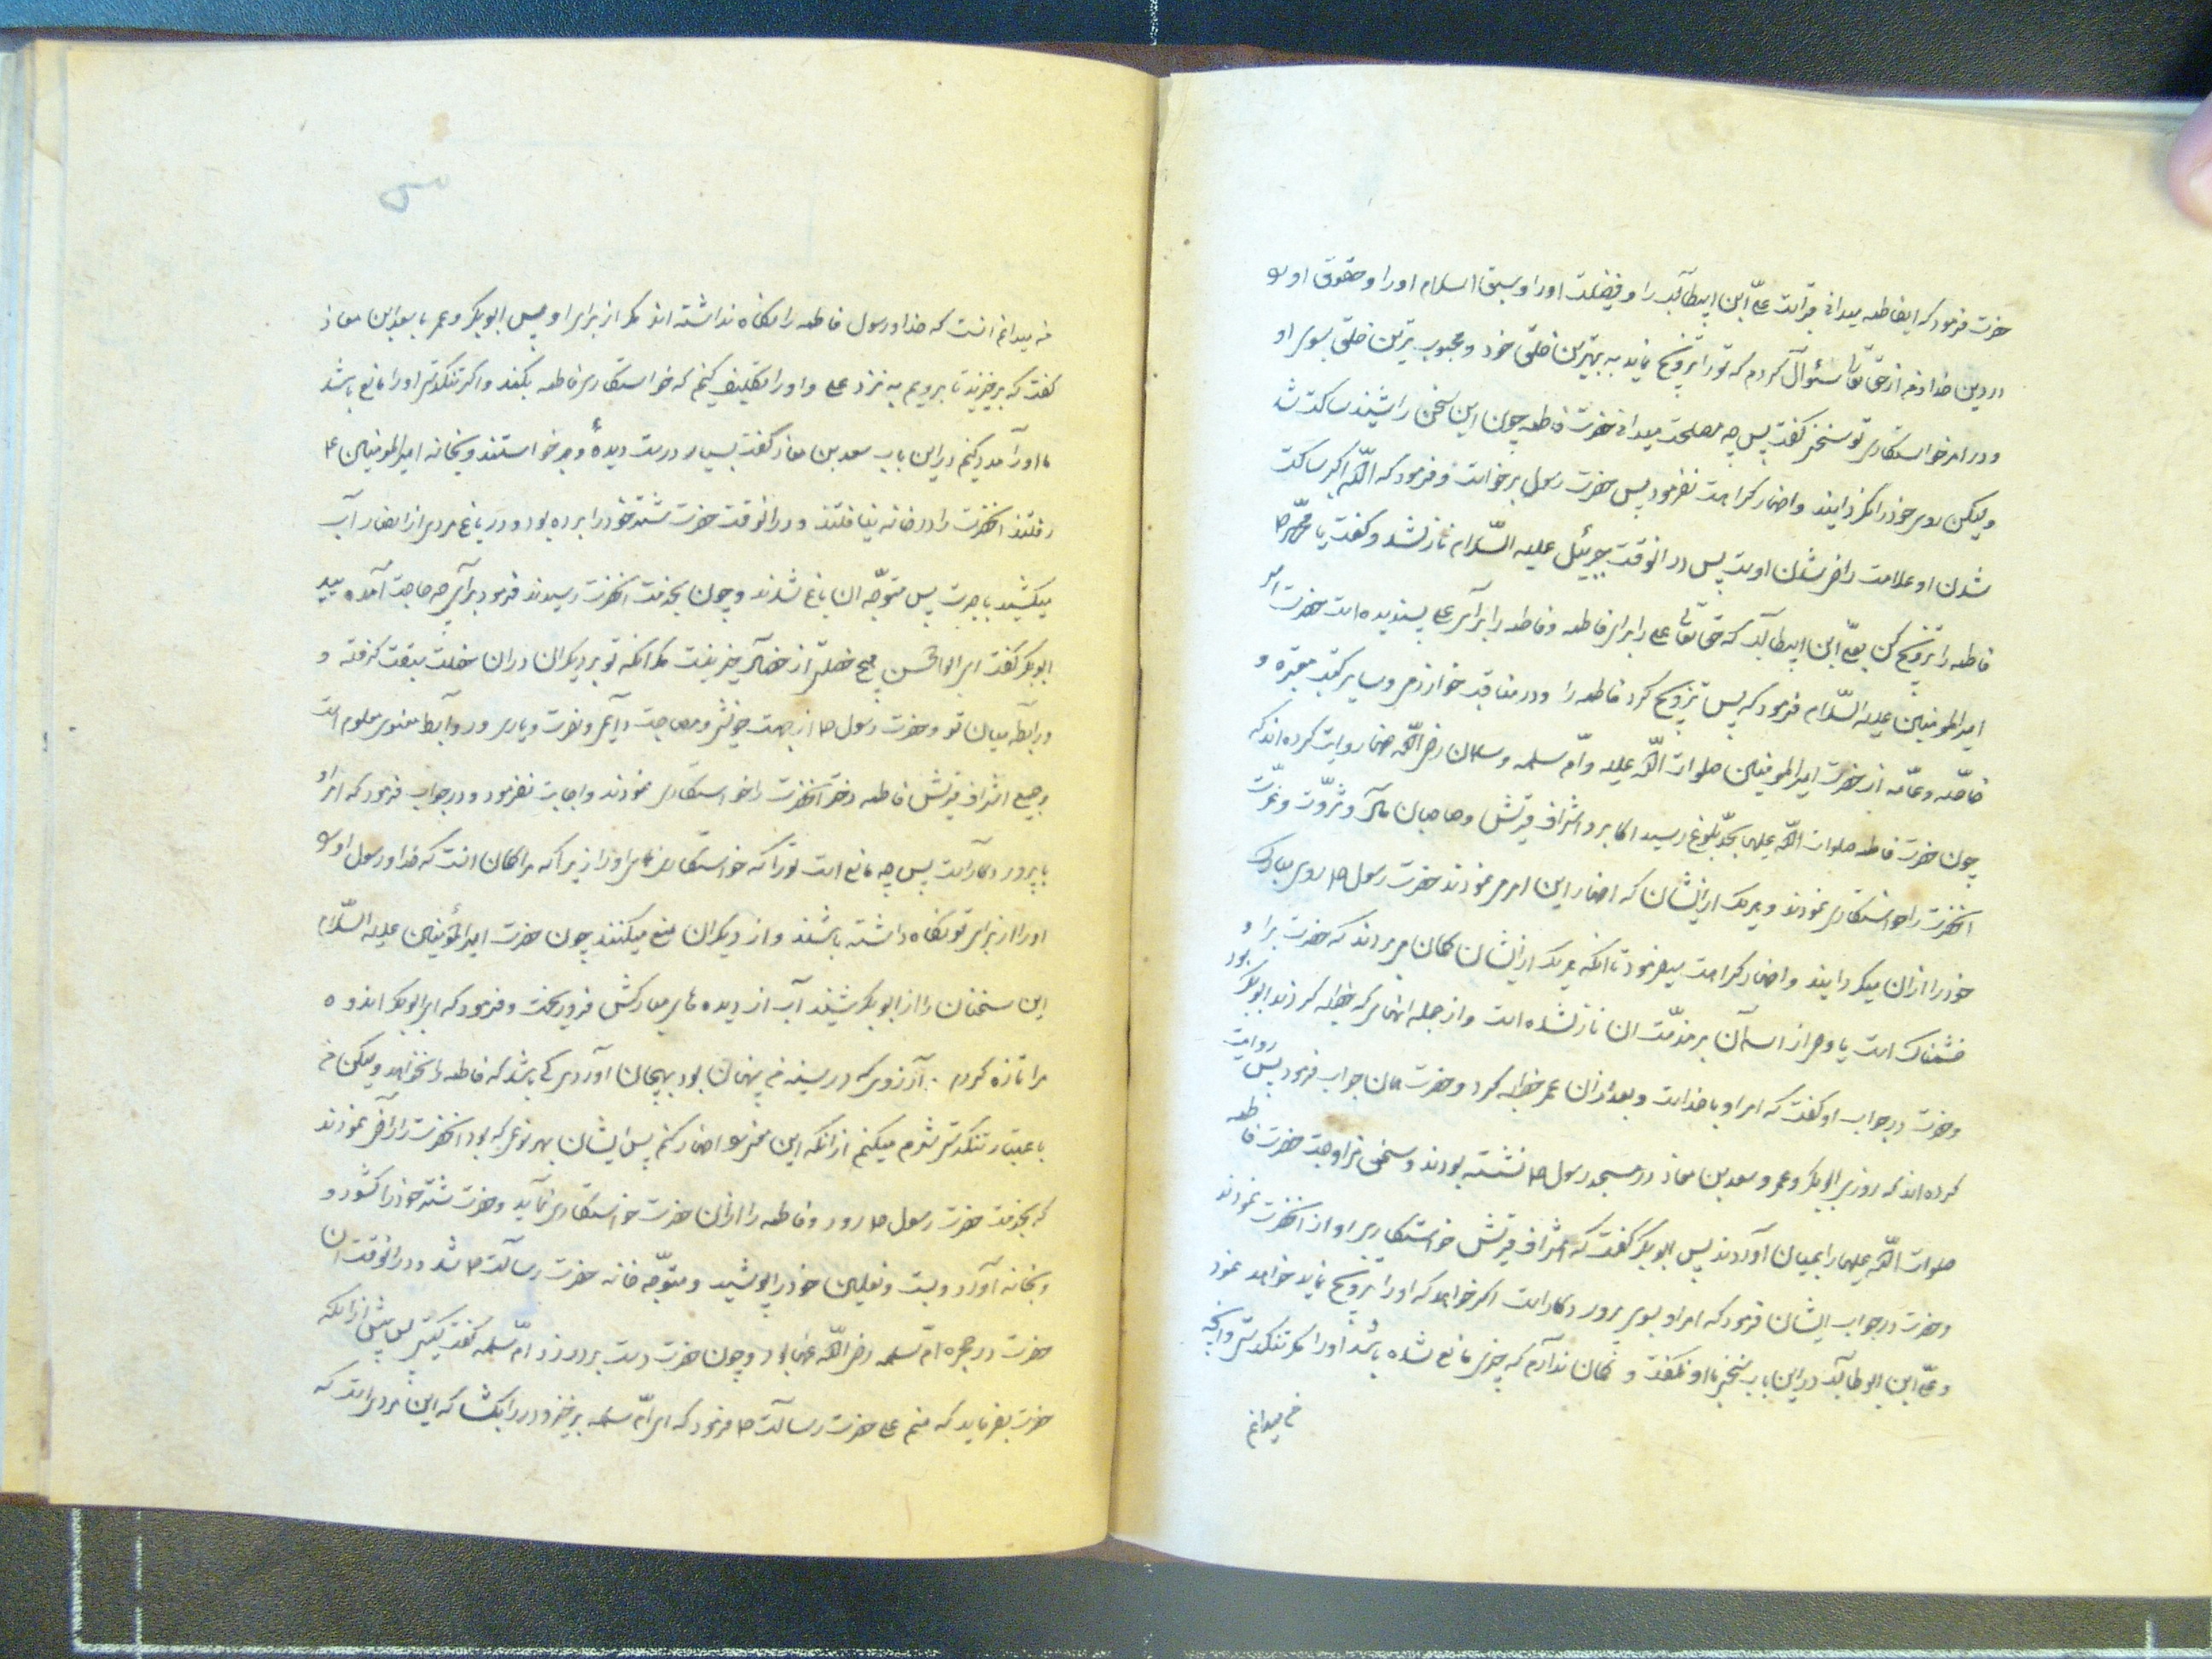 حضرت فرمود که ایفاطمه میدانی قرابت علیّ ابن ابیطالب را و فضیلت او را و سبق اسلام او را و حقوق او را
در دین خدا و من از حق تعالی سئوال کردم که تو را تزویج نماید به بهترین خلق خود و محبوب ترین خلق بسوی او
و در امر خواستکاری تو سخنی کفت پس چه مصلحت میدانی حضرت فاطمه چون این سخن را شنید ساکت شد
ولیکن روی خود را نکردانید و اظهار کراهت نفرمود پس حضرت رسول برخواست و فرمود که اللّه اکبر ساکت
شدن او علامت راضی شدن اوست پس در انوقت جبرئیل علیه السّلام نازلشد و کفت یا محمّد ص
فاطمه را تزویج کن بعلیّ ابن ابیطالب که حق تعالی علی را برای فاطمه و فاطمه را برای علی پسندیده است حضرت امیر
امیرالمومنین علیه السّلام فرمود که پس تزویج کرد فاطمه را و در مناقب خوارزمی و سایر کتب معتبره و
خاصّه و عامّه از حضرت امیرالمومنین صلوات اللّه علیه و امّ سلمه و سلمان رضی اللّه عنها روایت کرده اند که
چون حضرت فاطمه صلوات اللّه علیها بحدّ بلوغ رسید اکابر و اشراف قریش و صاحبان مال و ثروّت و عزّت
انحضرت را خواستکاری نمودند و هریک از ایشان که اظهار این امر می نمودند حضرت رسول ص روی مبارک
خود را از ان میکردانید و اظهار کراهت میفرمود تا انکه هریک از ایشان کمان می بردند که حضرت بر او
خشمناک است یا وحی از اسمان بر مذمّت ان نازلشده است و از جمله انهائی که خطبه کردند ابوبکر بود
و حضرت در جواب او کفت که امر او با خداست و بعد از ان عمر خطبه کرد و حضرت همان جواب فرمود پس روایت
کرده اند که روزی ابوبکر و عمر و سعد بن معاذ در مسجد رسول ص نشسته بودند و سخن مزاوجت حضرت فاطمه
صلوات اللّه علیها را بمیان آوردند پس ابوبکر کفت که اشراف قریش خواستکاری او از انحضرت نمودند
و حضرت در جواب ایشان فرمود که امر او بسوی پرور دکار است اکر خواهد که او را تزویج نماید خواهد نمود
و علیّ ابن ابوطالب در این باب سخنی با او نکفت و کمان ندارم که چیزی مانع شده باشد او را مکر تنکدستی و انچه
من میدانم
من میدانم انست که خدا و رسول فاطمه را نکاه نداشته اند مکر از برای او پس ابوبکر و عمر با سعد ابن معاذ
کفت که برخیزید تا برویم به نزد علی و او را تکلیف کنیم که خواستکاری فاطمه بکند و اکر تنکدستی او را مانع باشد
ما او را مدد کنیم در این باب سعد بن معاذ کفت بسیار درست دیدهٔ و برخواستند و بخانه امیرالمومنین ع
رفتند انحضرت را در خانه نیافتند و در انوقت حضرت شتر خود را برده بود و در باغ مردی از انصار آب
میکشید باجرت پس متوجّه ان باغ شدند و چون بخدمت انحضرت رسیدند فرمود برای چه حاجت آمده اید
ابوبکر کفت ای ابوالحسن هیچ خصلتی از خصال خیر نیست مکر انکه تو بر دیکران در ان خصلت سبقت کرفته و
و رابطه میان تو و حضرت رسول ص از جهت خویشی و مصاحبت دایمی و نصرت و یاری و روابط معنوی معلوم است
و جمیع اشراف قریش فاطمه دختر انحضرت را خواستکاری نمودند و اجابت نفرمود و در جواب فرمود که امر او
با پرور دکار است پس چه مانع است تو را که خواستکاری نمائی او را زیرا که مرا کمان انست که خدا و رسول او را
او را از برای تو نکاه داشته باشند و از دیکران منع میکنند چون حضرت امیرالمؤمنین علیه السّلام
این سخنان را از ابوبکر شنید آب از دیده های مبارکش فرو ریخت و فرمود که ای ابوبکر اندوه
مرا تازه کردی . آرزوی که در سینه من پنهان بود بهیجان آوردی کی باشد که فاطمه را نخواهد ولیکن من
باعتبار تنکدستی شرم میکنم از انکه این معنی را اظهار کنم پس ایشان بهر نوعی که بود انحضرت را راضی نمودند
که بخدمت حضرت رسول ص رود و فاطمه را از ان حضرت خواستکاری نماید و حضرت شتر خود را کشود و
و بخانه آورد و بست و نعلین خود را پوشید و متوجّه خانه حضرت رسالت ص شد و در انوقت ان
حضرت در حجره امّ سلمه رضی اللّه عنها بود و چون حضرت دست بر در زد امّ سلمه کفت کیستی پس پیش از انکه
حضرت بفرماید که منم علی حضرت رسالت ص فرمود که ای امّ سلمه برخیز و در را بکشا که این مردی است که